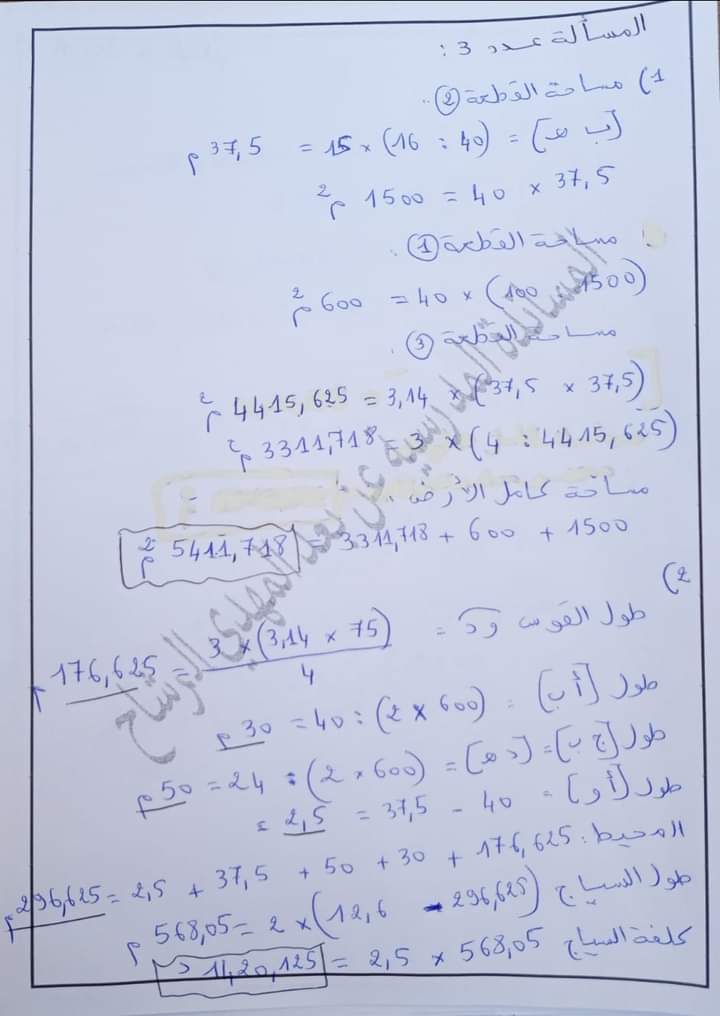 المسألة عدد 3 :
1) مساحة القطعة ②
[ب هـ] = (40 : 16) × 15 = 37,5 م
37,5 × 40 = 1500 م²
مساحة القطعة ①
(1500 100) × 40 = 600 م²
مساحة القطعة ③
(37,5 × 37,5) × 3,14 = 4415,625 م²
(4415,625 : 4) × 3 = 3311,718 م²
مساحة كامل الأرض
1500 + 600 + 3311,718 = 5411,718 م²
2)
طول القوس ود = 3 × (3,14 × 75) / 4 = 176,625 م
طول [أب] = (600 × 2) : 40 = 30 م
طول [ج ب] = [د هـ] = (600 × 2) : 24 = 50 م
طول [أو] = 40 - 37,5 = 2,5 م
المحيط : 176,625 + 30 + 50 + 37,5 + 2,5 = 296,625 م
طول السياج (296,625 - 12,6) × 2 = 568,05 م
كلفة السياج 568,05 × 2,5 = 1420,125 د
المسائلة المدرسية عن بعد المهدي المرشاح